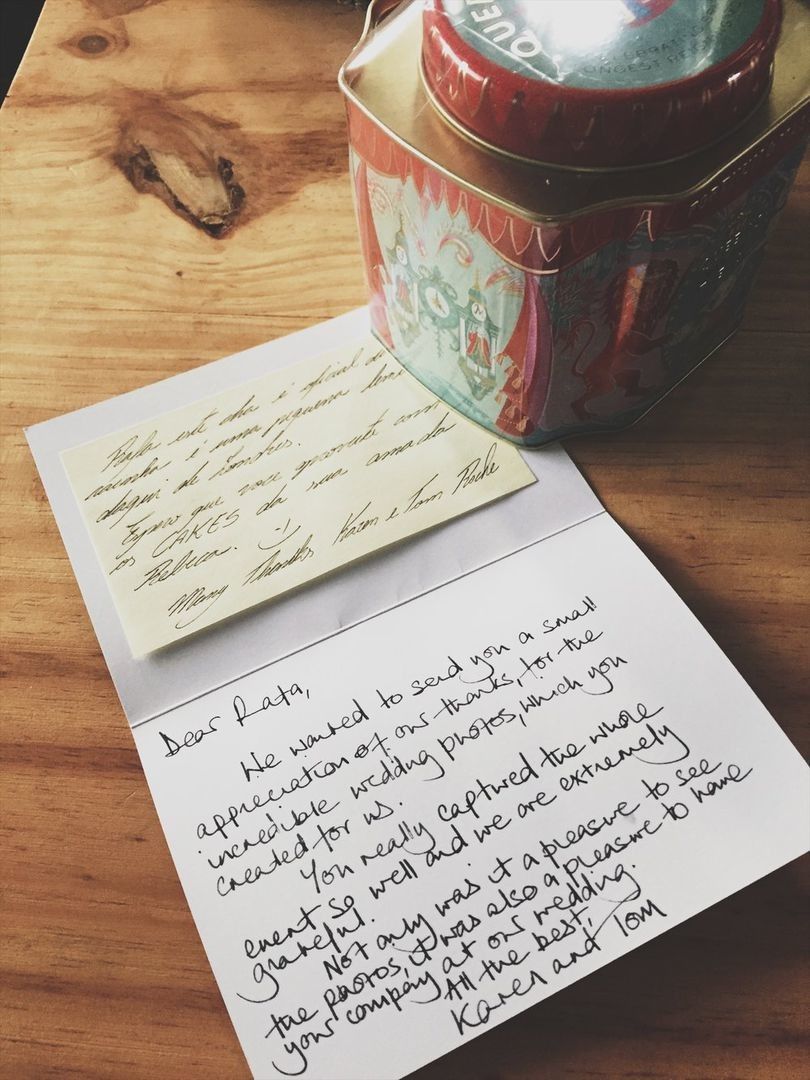 QUEE
CELEBRATING
LONGEST RE
Rafa este cha é oficial da
rainha é uma pequena lem
daqui de Londres.
Espero que você aproveite com
os CAKES da sua amada
Rebeca. :-)
Many Thanks Karen e Tom Roche
Dear Rafa,
We wanted to send you a small
appreciation of our thanks, for the
incredible wedding photos, which you
created for us.
You really captured the whole
event so well and we are extremely
grateful.
Not only was it a pleasure to see
the photos, it was also a pleasure to have
your company at our wedding.
All the best,
Karen and Tom